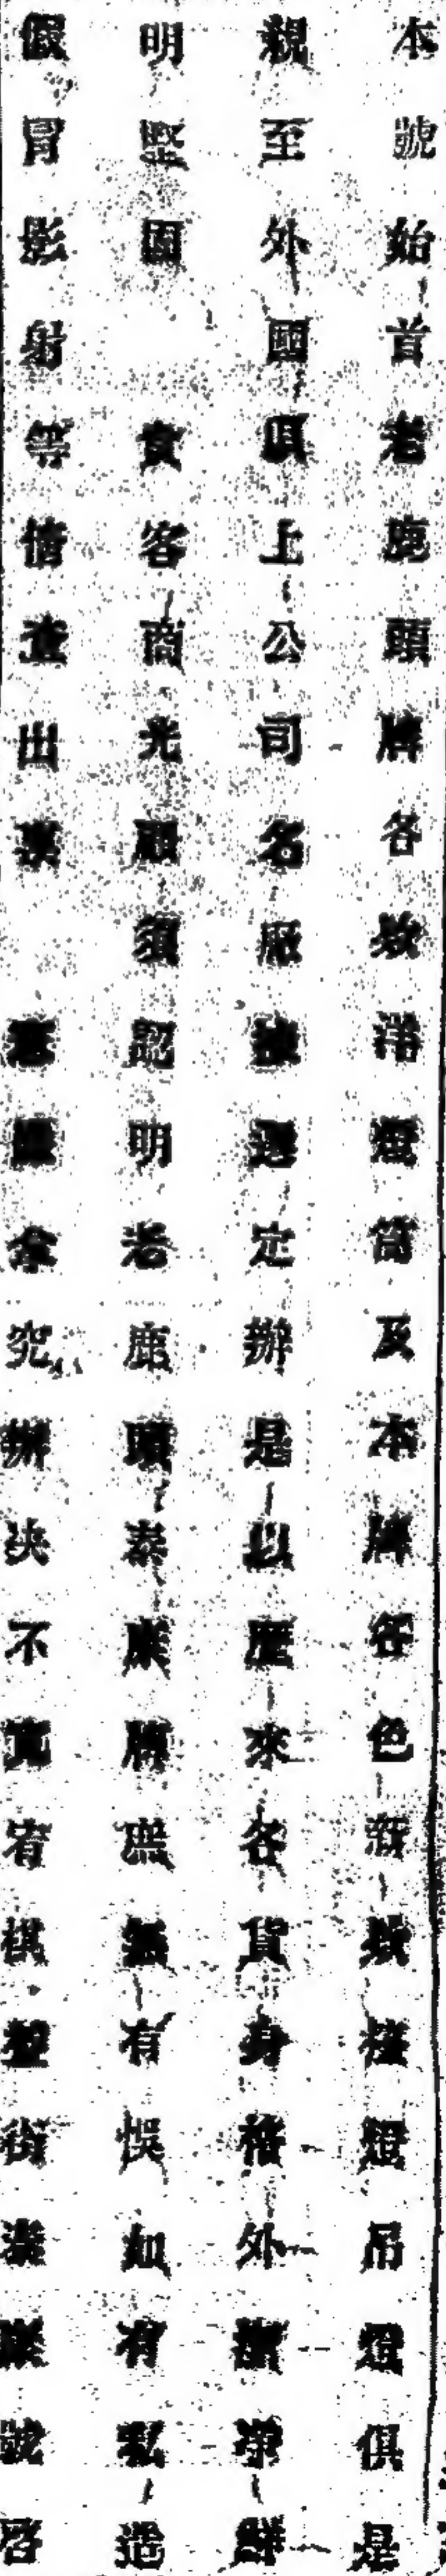 本號始首老鹿頭牌各欵洋燈筒及本牌各色新欵檯燈吊燈俱是
親至外國頂上公司名廠揀選定辦是以歷來各貨身格外潔净鮮
明堅固 貴客商光顧須認明老鹿頭泰康牌庶無有悞如有私造
假冒影射等情查出稟 憲嚴拿究辦决不寬宥棋盤街泰康號啓